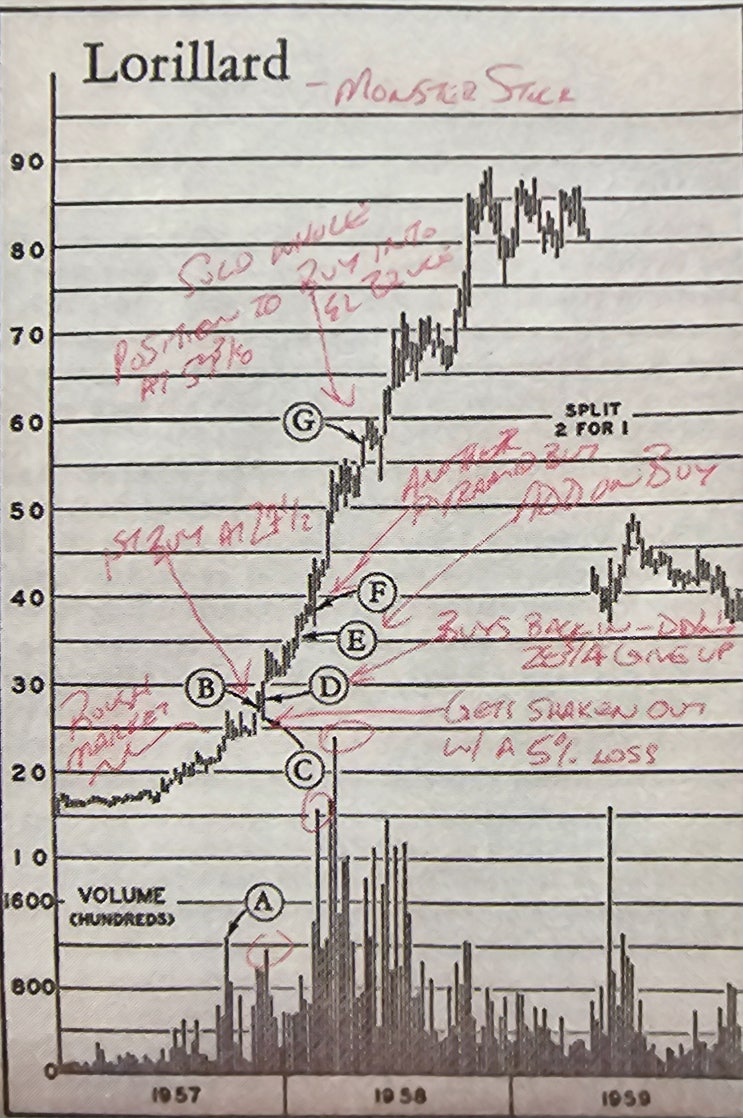 Lorillard
- MONSTER STOCK
90
80
70
60
50
40
30
20
10
SOLD WHOLE
POSITION TO BUY INTO
EL BRUCE
AT 57 3/8
G
SPLIT
2 FOR 1
ANOTHER
PYRAMID BUY
ADD ON BUY
1ST BUY AT 27 1/2
F
E
BUYS BACK IN -
GIVE UP
B
D
ROUGH
MARKET
GETS SHAKEN OUT
W/ A 5% LOSS
C
A
1600
VOLUME
(HUNDREDS)
800
0
1957
1958
1959